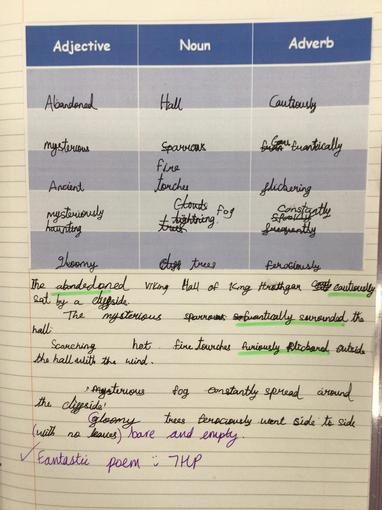 Adjective Noun Adverb
Abandoned Hall Cautiously
mysterious sparrows frantically
Ancient fire torches flickering
mysteriously haunting Clouds lightning fog Constantly frequently
gloomy trees ferociously
The abandedoned Viking Hall of King Hrothgar cautiously
sat by a cliffside.
The mysterious sparrows frantically surronded the
hall.
Scarching hot fire tourches furiously flickered outside
the hall with the wind.
mysterious fog constantly spread around
the cliffside.
Gloomy trees ferociously went side to side
(with no leaves) bare and empty.
Fantastic poem :: 7HP